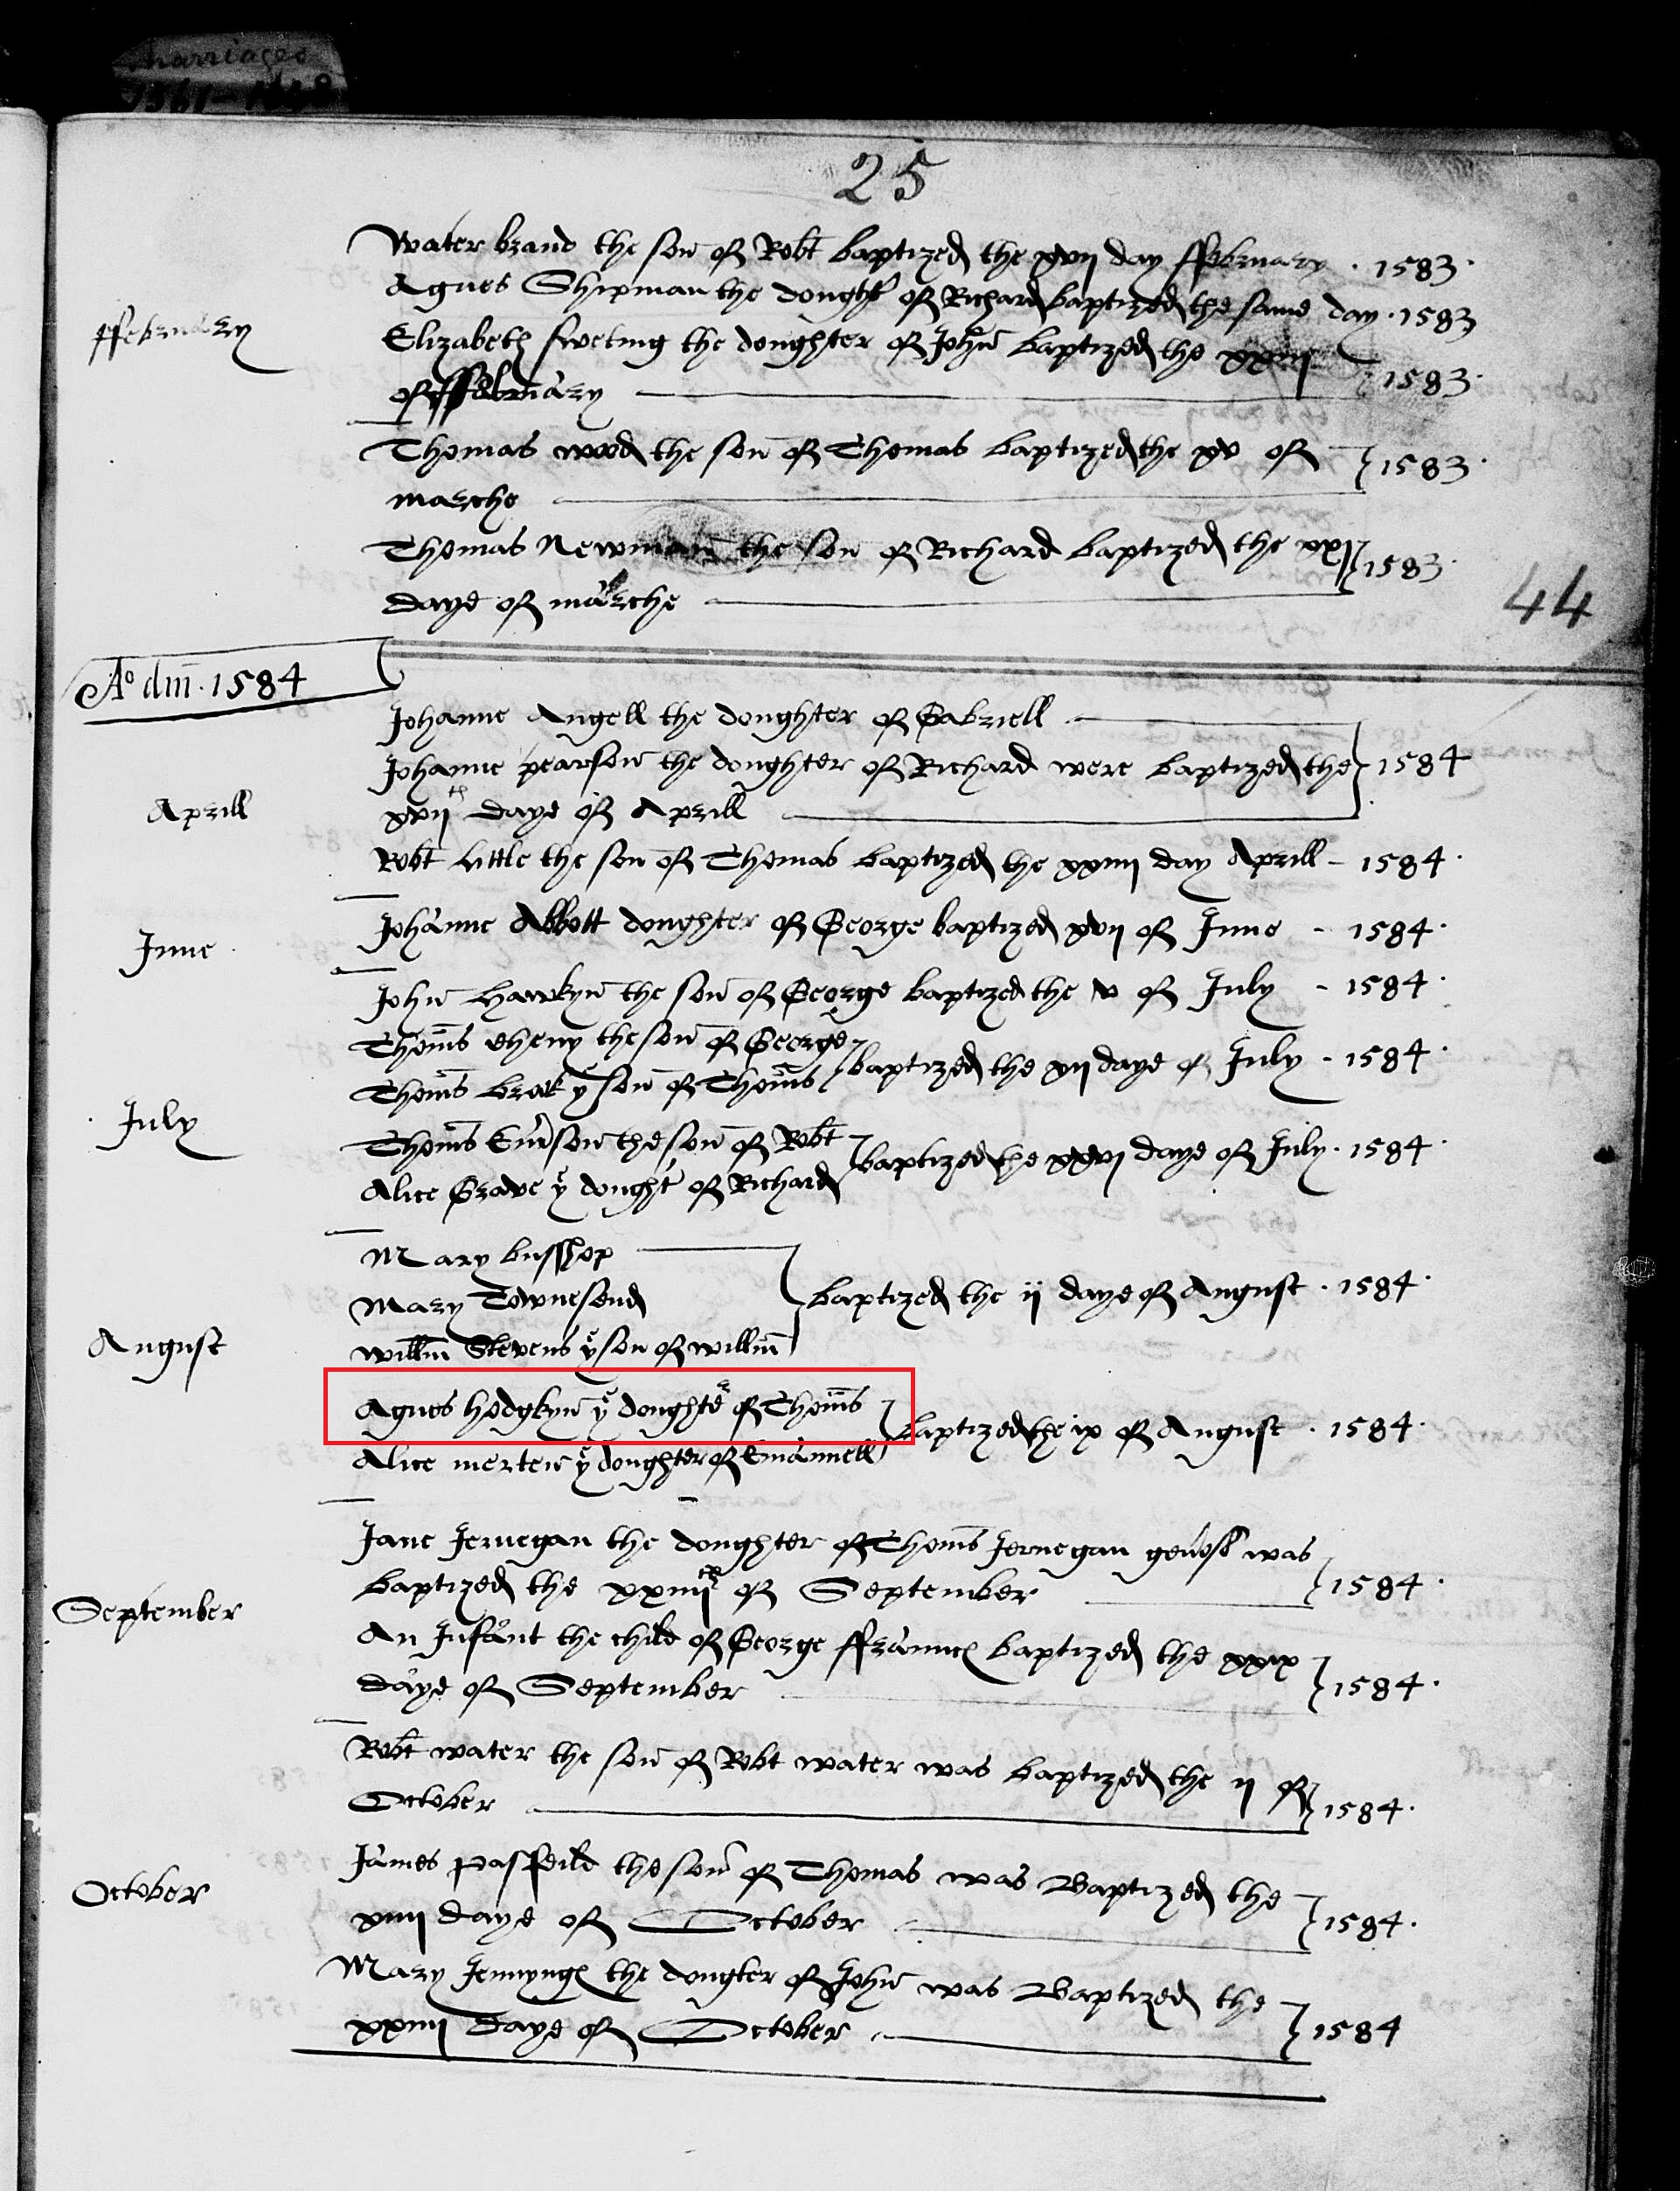 Marriages
1561-1648
25
Water brand the son of Robt baptized the xvij day ffebruary . 1583 .
Agnes Shipman the dought of Richard baptized the same day . 1583
ffebruary
Elizabeth sweting the doughter of John baptized the xxiij
of ffebruary } 1583 .
Thomas wood the son of Thomas baptized the xv of
marche } 1583 .
Thomas Newman the son of Richard baptized the xxij
daye of marche } 1583 .
44
Ao dm . 1584
Johanne Angell the doughter of Gabriell
Johanne pearson the doughter of Richard were baptized the } 1584
Aprill
xvijth daye of Aprill
Robt Little the son of Thomas baptized the xxiiij day Aprill - 1584 .
June
Johanne Abbott doughter of George baptized xvij of June - 1584 .
John Hawkyn the son of George baptized the v of July - 1584 .
Thoms cheny the son of George
Thoms brok ye son of Thoms } baptized the xij daye of July - 1584 .
July
Thoms Emson the son of Robt
Alice Grave ye dought of Richard } baptized the xxvj daye of July . 1584 .
Mary busshop
Mary Townesend } baptized the ij daye of August . 1584 .
August
willm Stevens ye son of willm
Agnes Hodgkyn ye doughter of Thoms
Alice merten ye doughter of Emanuell } baptized the ix of August . 1584 .
Jane Jernegan the doughter of Thoms Jernegan was
baptized the xxiiijth of September } 1584 .
September
An Infant the child of George ffrauncs baptized the xxix
daye of September } 1584 .
Robt water the son of Robt water was baptized the ij of
October } 1584 .
James Passeild the son of Thomas was Baptized the
October
xiiij daye of October } 1584 .
Mary Jennyngs the doughter of John was Baptized the
xxiiij Daye of October } 1584